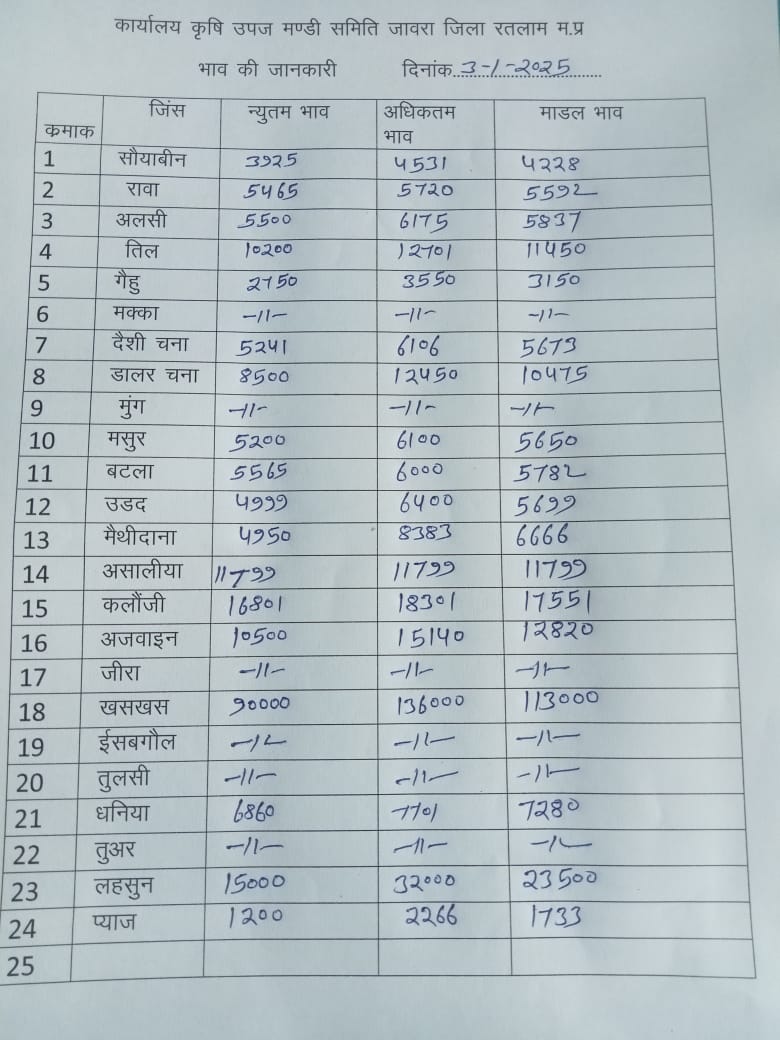 कार्यालय कृषि उपज मण्डी समिति जावरा जिला रतलाम म.प्र
भाव की जानकारी दिनांक..3-1-2025......
कमाक जिंस न्युतम भाव अधिकतम भाव माडल भाव
1 सौयाबीन 3925 4531 4228
2 रावा 5465 5720 5592
3 अलसी 5500 6175 5837
4 तिल 10200 12701 11450
5 गैहु 2750 3550 3150
6 मक्का -11- -11- -11-
7 दैशी चना 5241 6106 5673
8 डालर चना 8500 12450 10475
9 मुंग -11- -11- -11-
10 मसुर 5200 6100 5650
11 बटला 5565 6000 5782
12 उडद 4999 6400 5699
13 मैथीदाना 4950 8383 6666
14 असालीया 11799 11799 11799
15 कलौंजी 16801 18301 17551
16 अजवाइन 10500 15140 12820
17 जीरा -11- -11- -11-
18 खसखस 90000 136000 113000
19 ईसबगौल -11- -11- -11-
20 तुलसी -11- -11- -11-
21 धनिया 6860 7701 7280
22 तुअर -11- -11- -11-
23 लहसुन 15000 32000 23500
24 प्याज 1200 2266 1733
25